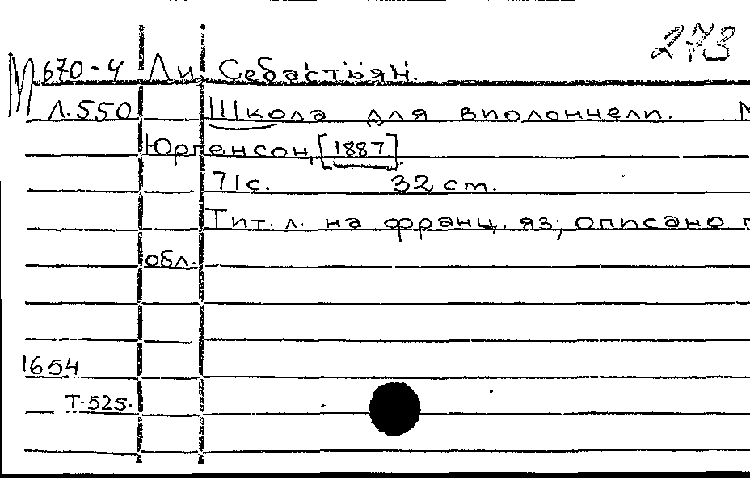 273
М 670-4 Ли Себастьян.
Л.550 Школа для виолончели. М
Юргенсон, [1887]
71 с. 32 cm.
Тит. л. на франц. яз, описано п
обл.
1654
Т-525.